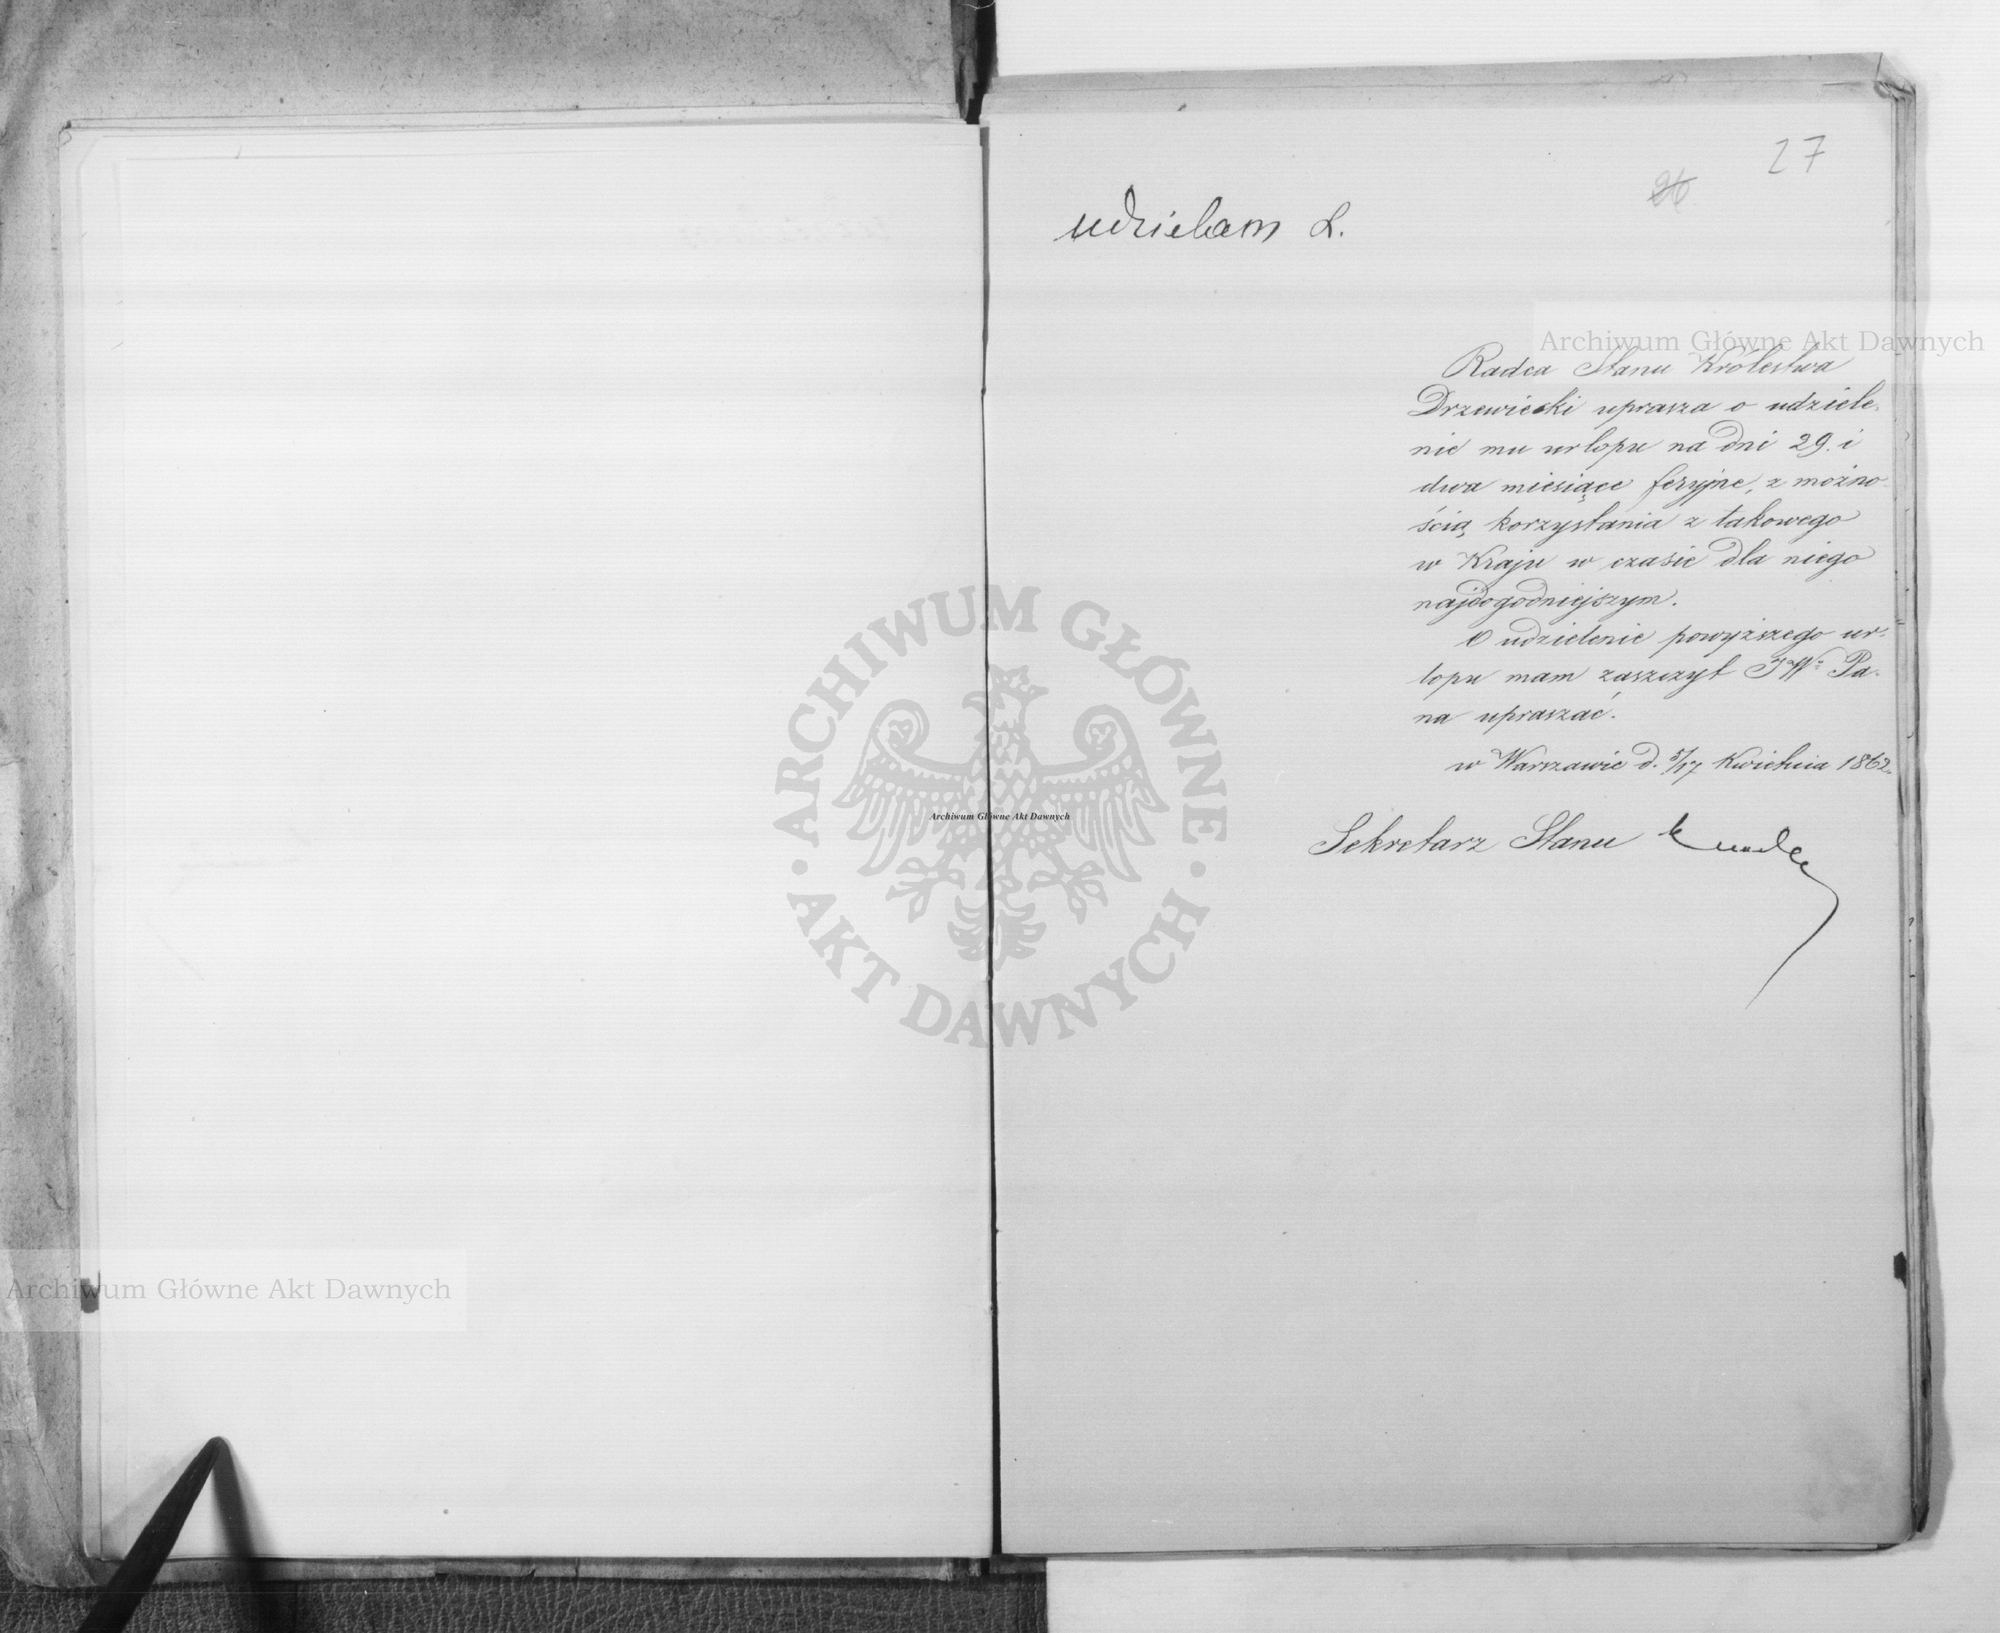 27
26
udzielam L.
Archiwum Główne Akt Dawnych
Radca Stanu Królestwa
Drzewiecki uprasza o udziele-
nie mu urlopu na dni 29. i
dwa miesiące feryjne, z możno-
ścią korzystania z takowego
w Kraju w czasie dla niego
najdogodniejszym.
O udzielenie powyższego ur-
lopu mam zaszczyt JW. Pa-
na upraszać.
w Warszawie d. 5/17 Kwietnia 1862.
Sekretarz Stanu
ARCHIWUM GŁÓWNE · AKT DAWNYCH ·
Archiwum Główne Akt Dawnych
Archiwum Główne Akt Dawnych